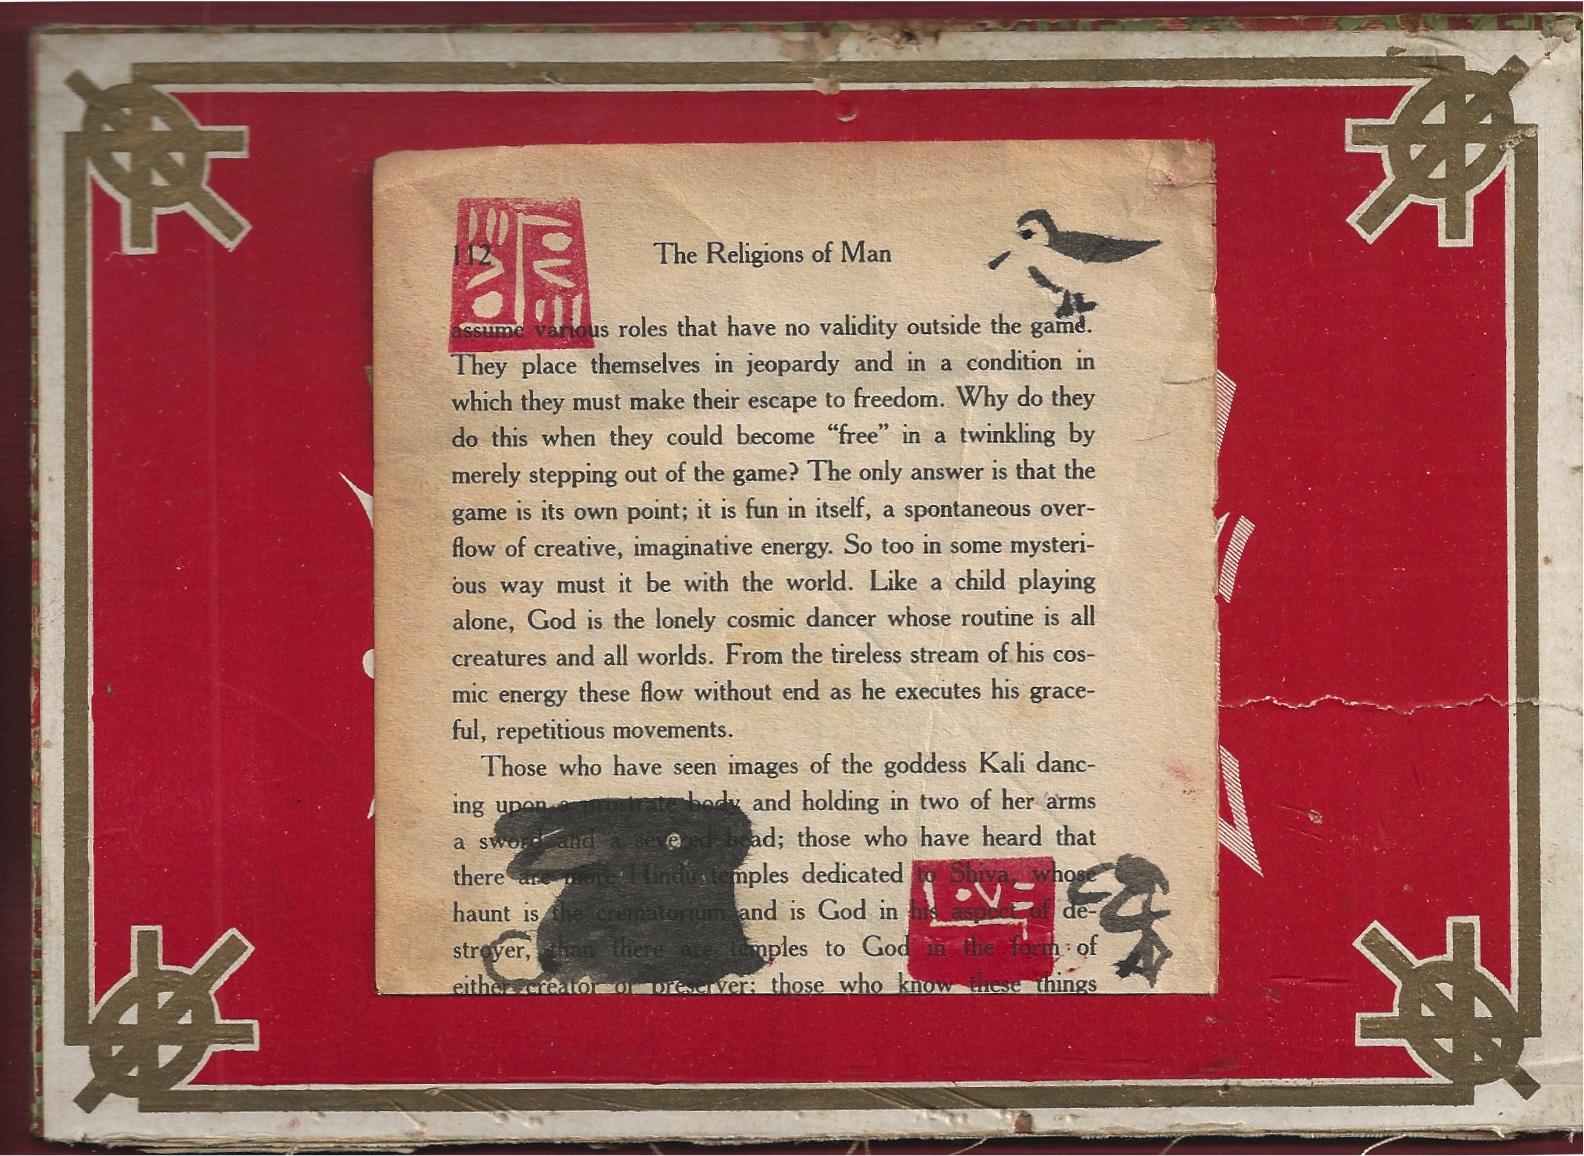 112 The Religions of Man
assume various roles that have no validity outside the game.
They place themselves in jeopardy and in a condition in
which they must make their escape to freedom. Why do they
do this when they could become “free” in a twinkling by
merely stepping out of the game? The only answer is that the
game is its own point; it is fun in itself, a spontaneous over-
flow of creative, imaginative energy. So too in some mysteri-
ous way must it be with the world. Like a child playing
alone, God is the lonely cosmic dancer whose routine is all
creatures and all worlds. From the tireless stream of his cos-
mic energy these flow without end as he executes his grace-
ful, repetitious movements.
Those who have seen images of the goddess Kali danc-
ing upon a prostrate body and holding in two of her arms
a sword and a severed head; those who have heard that
there are more Hindu temples dedicated to Shiva, whose
haunt is the crematorium and is God in his aspect of de-
stroyer, than there are temples to God in the form of
either creator or preserver; those who know these things
LOVE